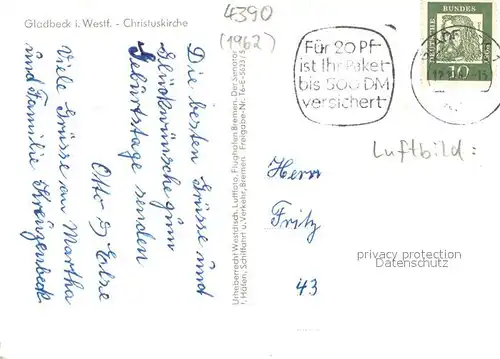 Gladbeck i. Westf. - Christuskirche
4390
(1962)
Die besten Grüsse und
Glückwünsche zum
Geburtstage senden
Otto u. Erbse
Viele Grüsse an Martha
und Familie Kreuzenbeck
Urheberrecht Westdtsch. Luftfoto, Flughafen Bremen. Der Senator
f. Häfen, Schiffahrt u. Verkehr, Bremen Freigabe-Nr. T6-E-5623/5
Für 20 Pf
ist Ihr Paket
bis 500 DM
versichert
DEUTSCHE
BUNDES
POST
10
Luftbild:
Herrn
Fritz
43
privacy protection
Datenschutz